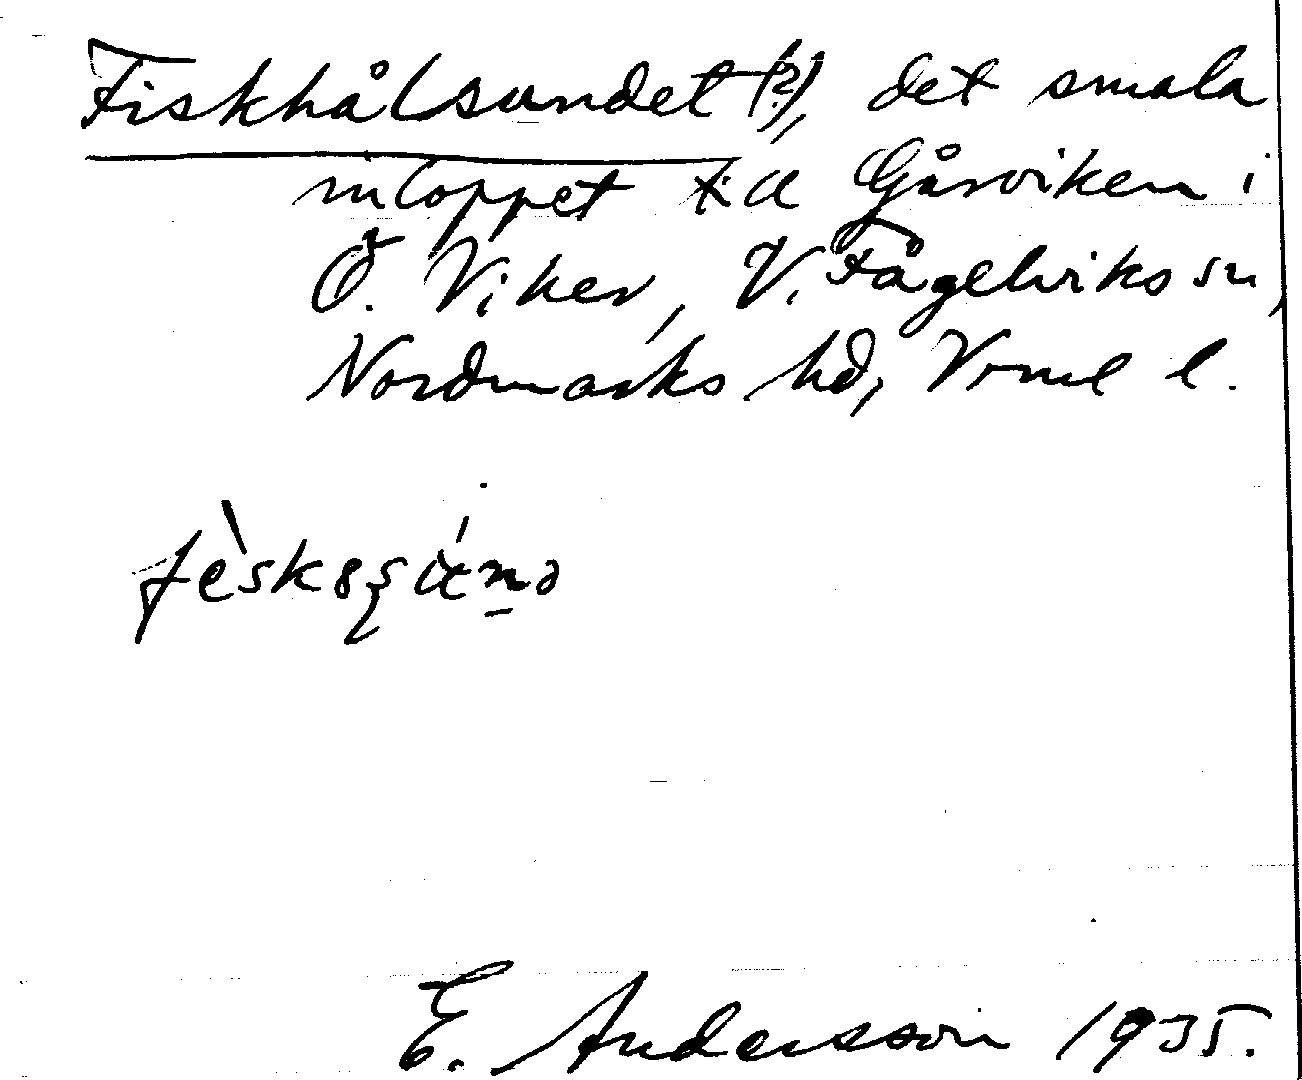 Fiskhålsundet (?), det smala
inloppet till Gårviken i
Ö. Viker, V. Fågelviks sn,
Nordmarks hd, Vrml l.
E. Andersson 1935.